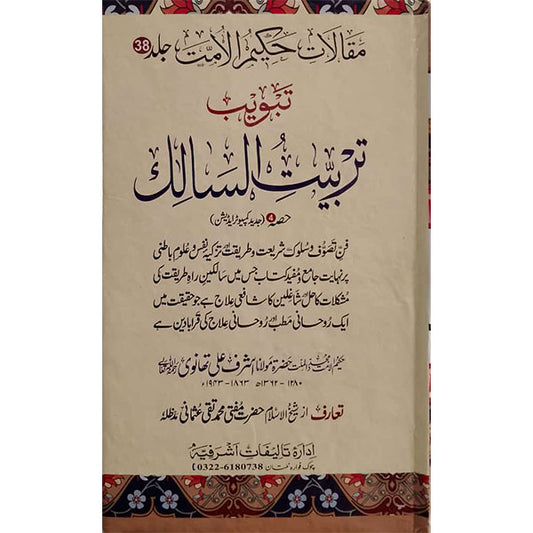 مقالات حکیم الامت جلد 38
تبویب
تربیت السالک
حصہ 4 (جدید کمپیوٹر ایڈیشن)
فن تصوف و سلوک شریعت و طریقت تزکیہ نفس و علوم باطنی
پر نہایت جامع و مفید کتاب جس میں سالکین راہ طریقت کی
مشکلات کا حل اور شاغلین کا شافعی علاج ہے جو حقیقت میں
ایک روحانی مطب اور روحانی علاج کی قرابادین ہے
حکیم الامت مجدد الملت حضرۃ مولانا اشرف علی تھانوی
۱۲۸۰ - ۱۳۶۲ھ ۱۸۶۳ - ۱۹۴۳ء
تعارف از شیخ الاسلام حضرت مفتی محمد تقی عثمانی مدظلہ
ادارہ تالیفات اشرفیہ
چوک فوارہ ملتان (0322-6180738